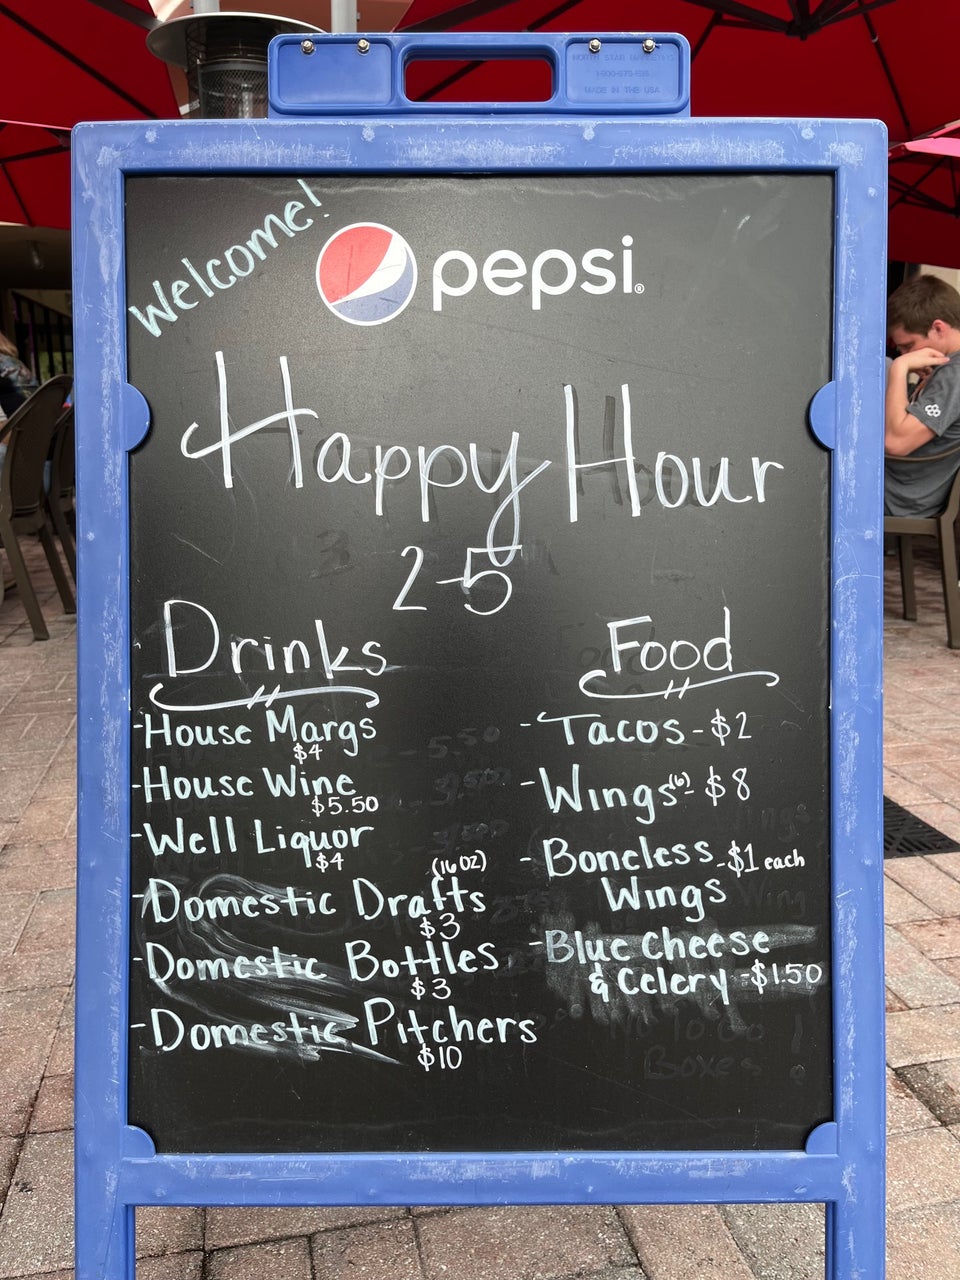 NORTH STAR MARKETING
MADE IN THE USA
Welcome!
pepsi®
Happy Hour
2-5
Drinks
- House Margs
$4
- House Wine
$5.50
- Well Liquor
$4
(16 OZ)
- Domestic Drafts
$3
- Domestic Bottles
$3
- Domestic Pitchers
$10
Food
- Tacos - $2
- Wings (6) - $8
- Boneless - $1 each
Wings
- Blue Cheese
& Celery - $1.50